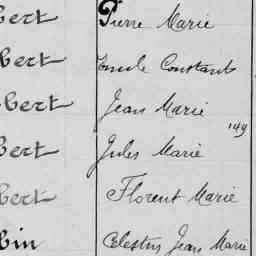 bert Pierre Marie
bert Emile Constant
bert Jean Marie
149
bert Jules Marie
bert Florent Marie
bin Celestin Jean Marie